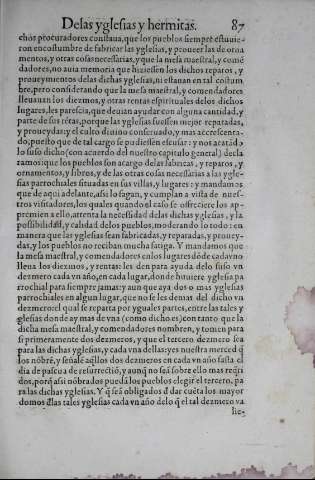 Delas yglesias y hermitas. 87
chos procuradores constaua, que los pueblos siempre estuuie-
ron en costumbre de fabricar las yglesias, y proueer las de orna
mentos, y otras cosas necessarias, y que la mesa maestral, y comẽ
dadores, no auia memoria que hiziessen los dichos reparos, y
proueymentos delas dichas yglesias, ni estauan en tal costum
bre, pero considerando que la mesa maestral, y comendadores
lleuauan los diezmos, y otras rentas espirituales delos dichos
lugares, les parescia, que deuian ayudar con alguna cantidad, y
parte de sus rẽtas, porque las yglesias fuessen mejor reparadas,
y proueydas: y el culto diuino conseruado, y mas accrescenta-
do, puesto que de tal cargo se pudiessen escusar: y nos acatãdo
lo suso dicho (con acuerdo del nuestro capitulo general) decla
ramos que los pueblos son acargo delas fabricas, y reparos, y
ornamentos, y libros, y de las otras cosas necessarias a las ygle-
sias parrochiales situadas en sus villas, y lugares: y mandamos
que de aqui adelante, assi lo hagan, y cumplan a vista de nues-
tros visitadores, los quales quando el caso se offreciere los ap-
premien a ello, attenta la necessidad delas dichas yglesias, y la
possibilidad, y calidad delos pueblos, moderando lo todo: en
manera que las yglesias sean fabricadas, y reparadas, y prouey-
das, y los pueblos no reciban mucha fatiga. Y mandamos que
la mesa maestral, y comendadores enlos lugares dõde cadavno
lleua los diezmos, y rentas: les den para ayuda delo suso vn
dezmero cada vn año, en cada lugar, donde huuiere yglesia pa
rrochial para siempre jamas: y aun que aya dos o mas yglesias
parrochiales en algun lugar, que no se les den mas del dicho vn
dezmero: el qual se reparta por yguales partes, entre las tales y-
glesias donde ay mas de vna (como dicho es) con tanto que la
dicha mesa maestral, y comendadores nombren, y tomen para
si primeramente dos dezmeros, y que el tercero dezmero sea
para las dichas yglesias, y cada vna dellas: y es nuestra merced q̃
los nõbrẽ, y señalẽ aq̃llos dos dezmeros en cada vn año fasta el
dia de pascua de resurrectiõ, y aunq̃ no seã sobre ello mas req̃ri
dos, porq̃ assi nõbrados pueda los pueblos elegir el tercero, pa
ra las dichas yglesias. Y q̃ seã obligados d̃ dar cuẽta los mayor
domos d̃las tales yglesias cada vn año delo q̃ el tal dezmero va
lie-